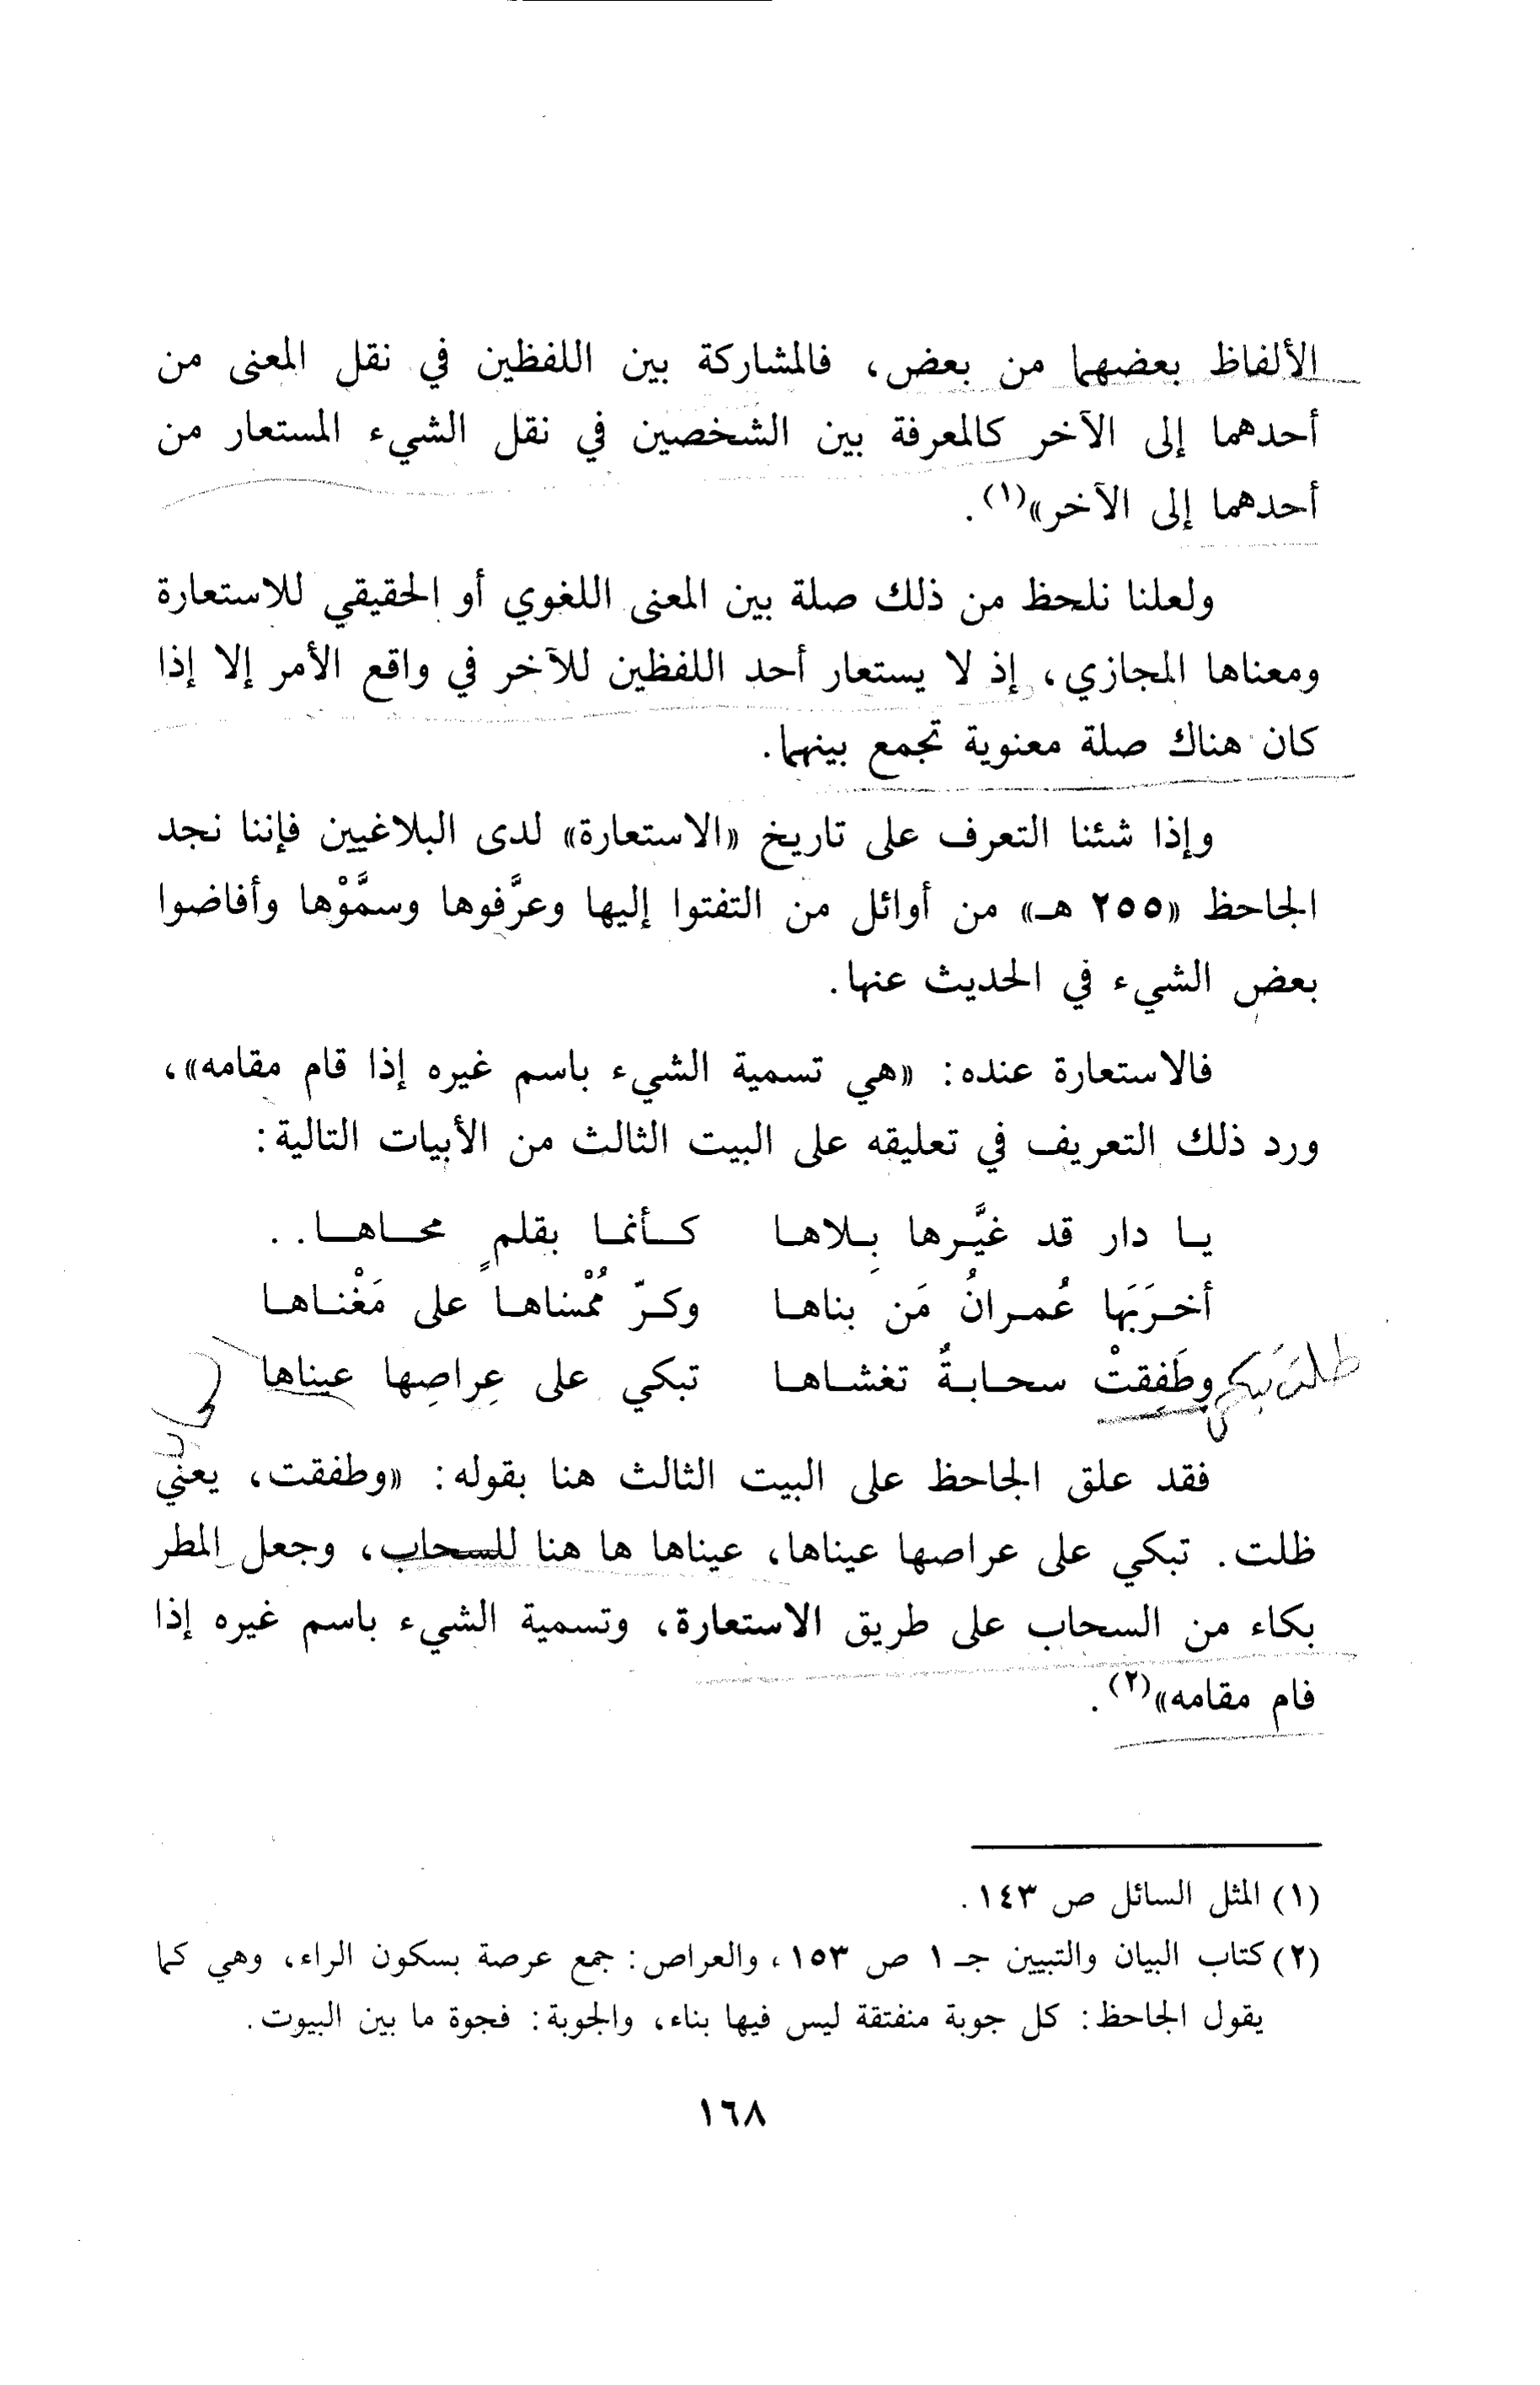 الألفاظ بعضهما من بعض، فالمشاركة بين اللفظين في نقل المعنى من
أحدهما إلى الآخر كالمعرفة بين الشخصين في نقل الشيء المستعار من
أحدهما إلى الآخر»(١).
ولعلنا نلحظ من ذلك صلة بين المعنى اللغوي أو الحقيقي للاستعارة
ومعناها المجازي، إذ لا يستعار أحد اللفظين للآخر في واقع الأمر إلا إذا
كان هناك صلة معنوية تجمع بينهما.
وإذا شئنا التعرف على تاريخ «الاستعارة» لدى البلاغيين فإننا نجد
الجاحظ «٢٥٥ هـ» من أوائل من التفتوا إليها وعرَّفوها وسمَّوْها وأفاضوا
بعض الشيء في الحديث عنها.
فالاستعارة عنده: «هي تسمية الشيء باسم غيره إذا قام مقامه»،
ورد ذلك التعريف في تعليقه على البيت الثالث من الأبيات التالية:
يـا دار قد غيَّـرها بِـلاهـا كـأنمـا بقلمٍ محـاهـا..
أخـرَبَها عُمـرانُ مَن بناهـا وكـرّ مُمْسْناهـا على مَغْنـاهـا
وطَفِقتْ سحـابـةٌ تغشـاهـا تبكي على عِراصِها عيناها
فقد علق الجاحظ على البيت الثالث هنا بقوله: «وطفقت، يعني
ظلت. تبكي على عراصها عيناها، عيناها ها هنا للسحاب، وجعل المطر
بكاء من السحاب على طريق الاستعارة، وتسمية الشيء باسم غيره إذا
قام مقامه»(٢).
(١) المثل السائل ص ١٤٣.
(٢) كتاب البيان والتبيين جـ ١ ص ١٥٣، والعراص: جمع عرصة بسكون الراء، وهي كما
يقول الجاحظ: كل جوبة منفتقة ليس فيها بناء، والجوبة: فجوة ما بين البيوت.
١٦٨